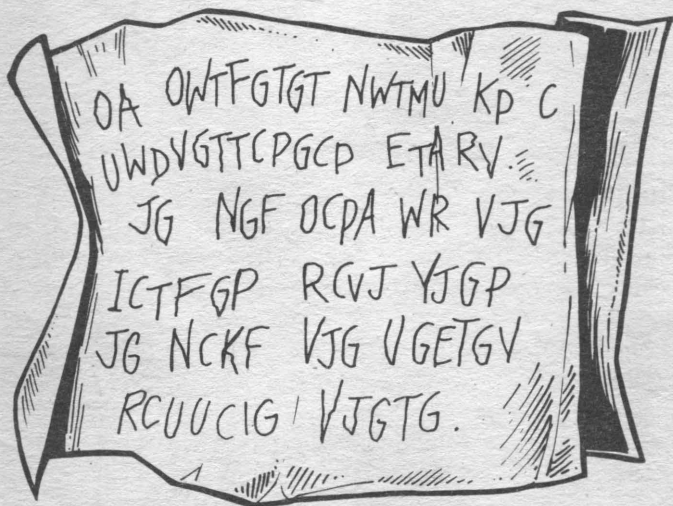 OA OWTFGTGT NWTMU KP C
UWDVGTTCPGCP ETARV.
JG NGF OCPA WR VJG
ICTFGP RCVJ YJGP
JG NCKF VJG UGETGV
RCUUCIG VJGTG.